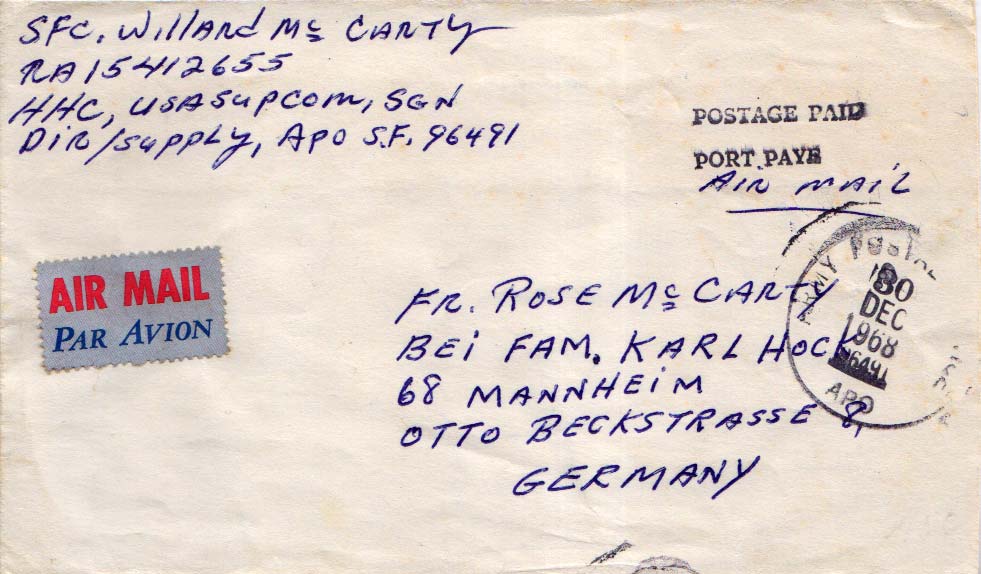 SFC. Willard Mc Carty
RA15412655
HHC, USASUPCOM, SGN
DIR/Supply, APO S.F. 96491
POSTAGE PAID
PORT PAYE
AIR MAIL
AIR MAIL
PAR AVION
ARMY POSTAL
30
DEC
1968
96491
APO
FR. ROSE Mc CARTY
BEI FAM. KARL HOCK
68 MANNHEIM
OTTO BECKSTRASSE 8,
GERMANY